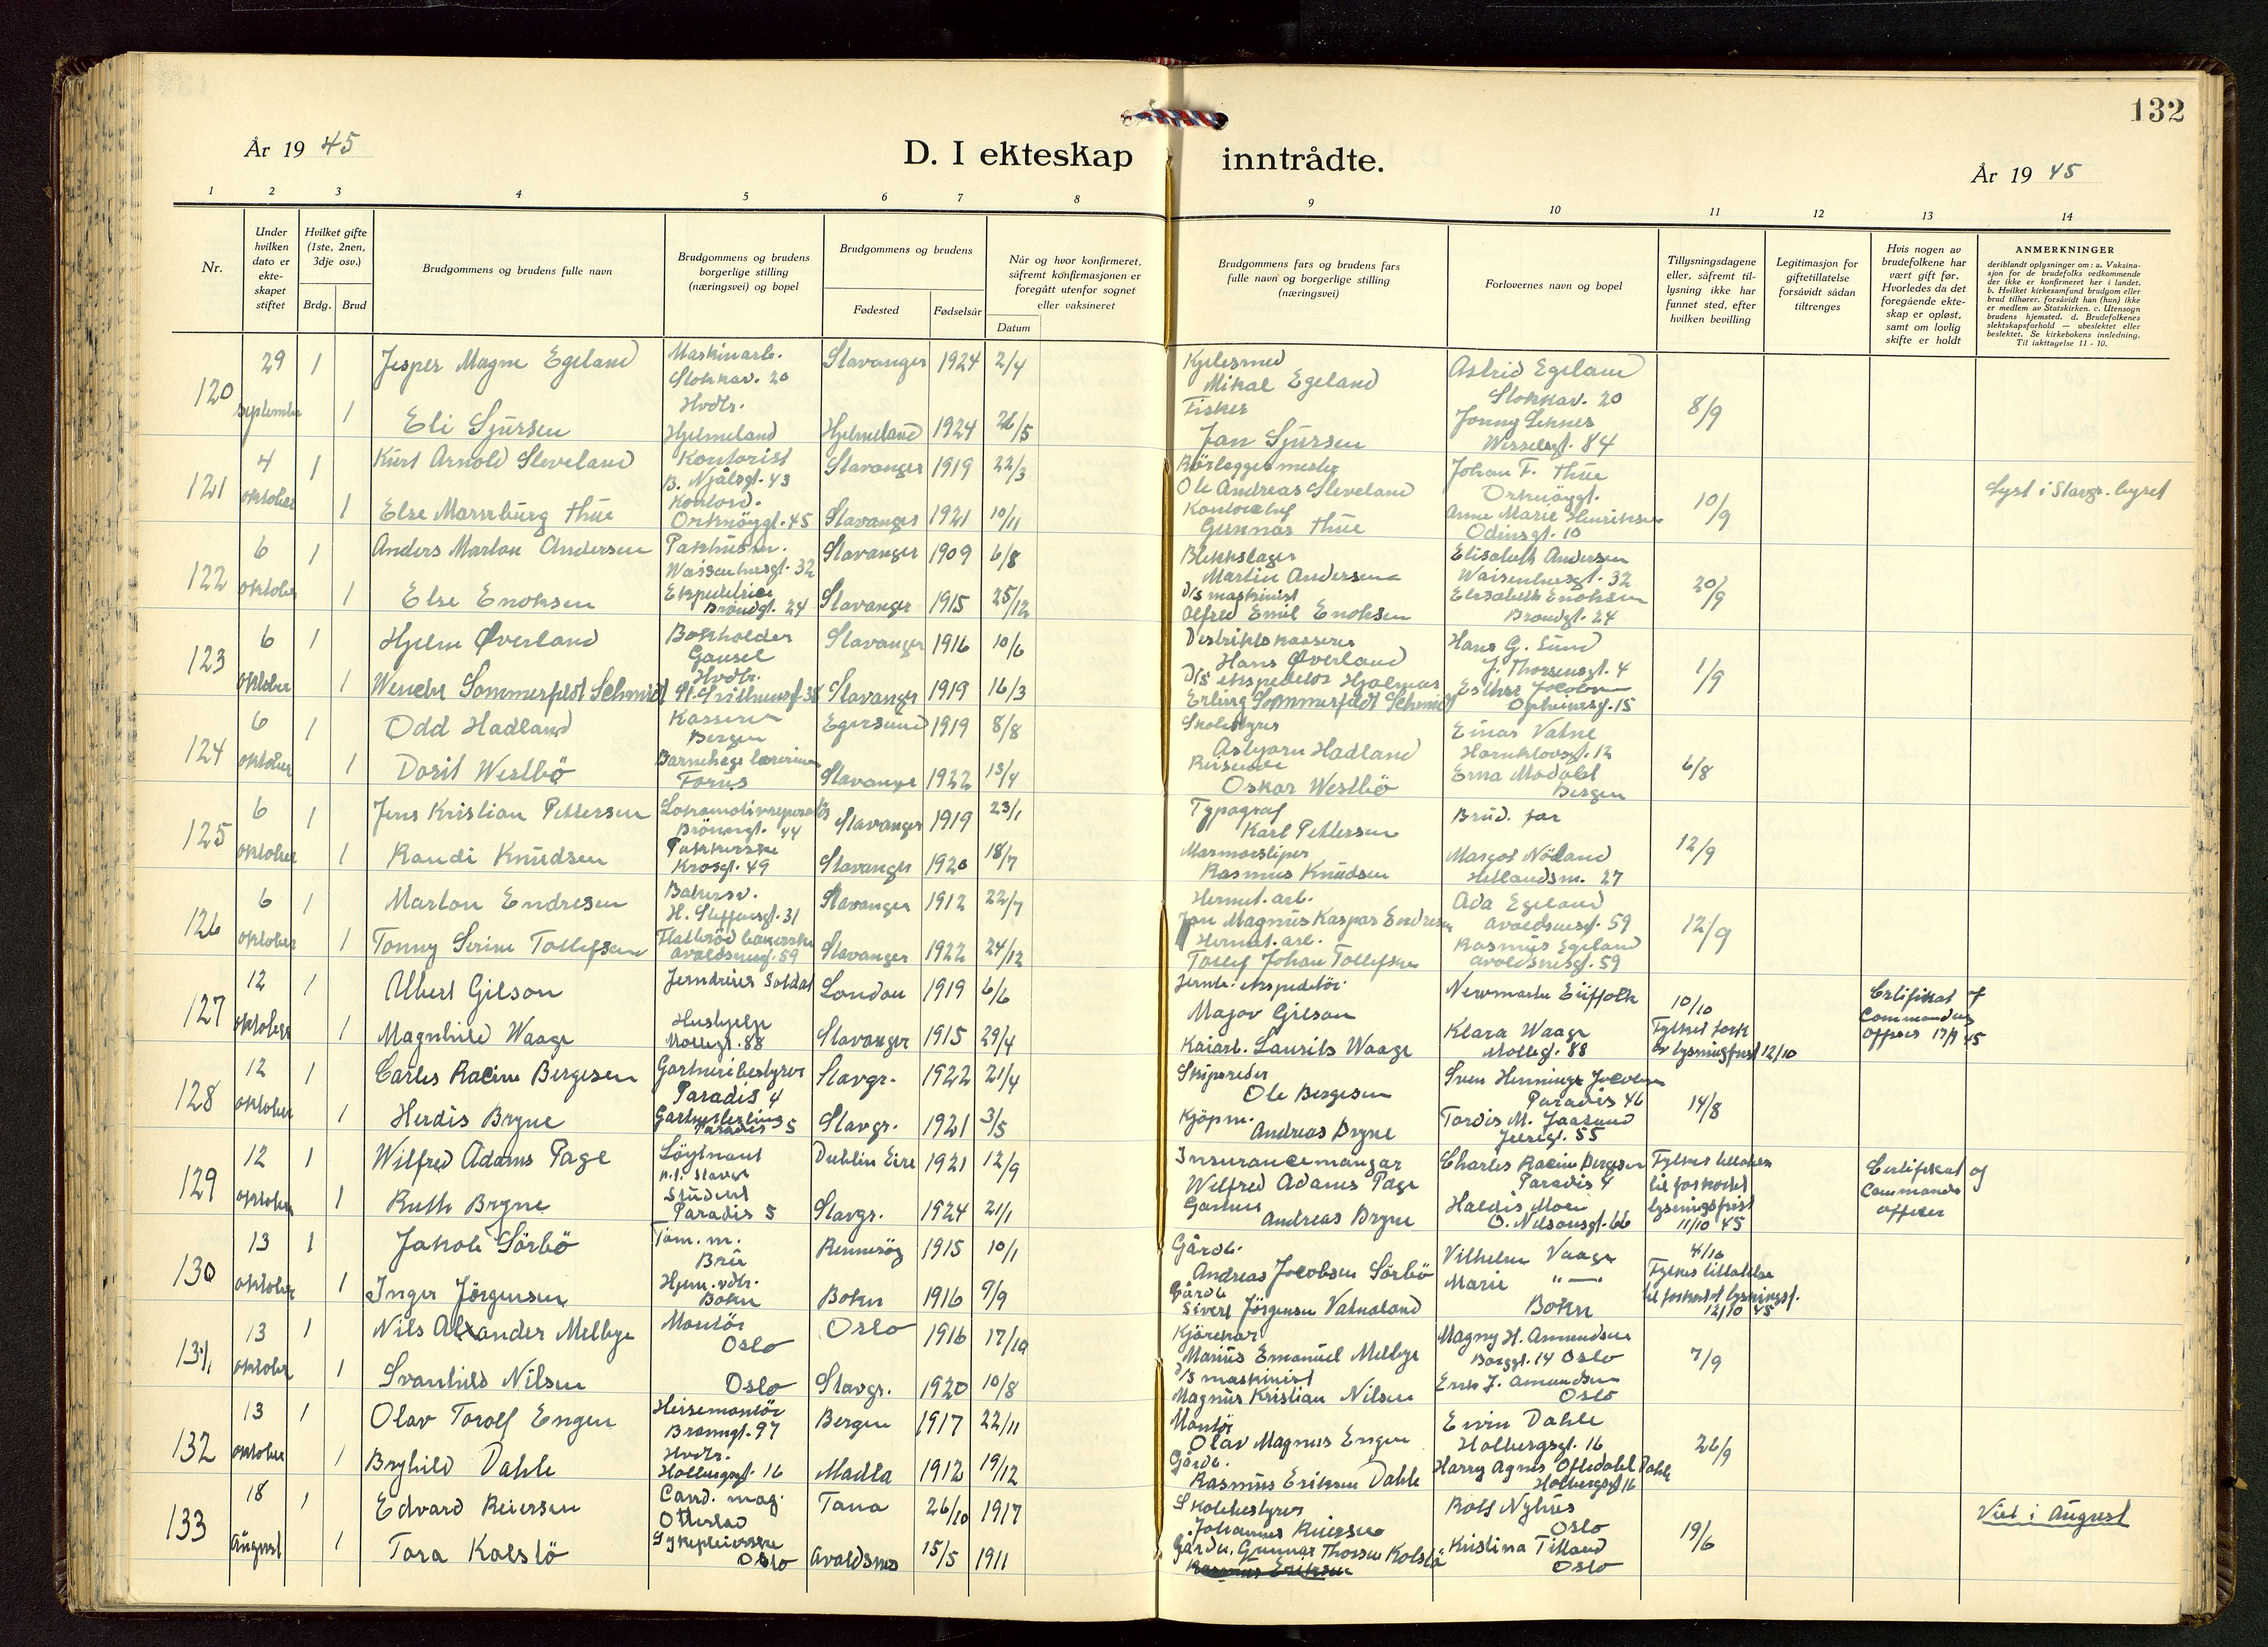 132
År 1945
D. I ekteskap inntrådte.
År 1945
1 2 3 4 5 6 7 8 9 10 11 12 13 14
Nr.
Under hvilken dato er ekte-skapet stiftet
Hvilket gifte (1ste, 2nen, 3dje osv.)
Brdg. Brud
Brudgommens og brudens fulle navn
Brudgommens og brudens borgerlige stilling (næringsvei) og bopel
Brudgommens og brudens
Fødested Fødselsår
Når og hvor konfirmeret, såfremt konfirmasjonen er foregått utenfor sognet eller vaksineret
Datum
Brudgommens fars og brudens fars fulle navn og borgerlige stilling (næringsvei)
Forlovernes navn og bopel
Tillysningsdagene eller, såfremt til-lysning ikke har funnet sted, efter hvilken bevilling
Legitimasjon for giftetillatelse forsåvidt sådan tiltrenges
Hvis nogen av brudefolkene har vært gift før. Hvorledes da det foregående ekte-skap er opløst, samt om lovlig skifte er holdt
ANMERKNINGER
deriblandt oplysninger om: a. Vaksina-sjon for de brudefolks vedkommende der ikke er konfirmeret her i landet. b. Hvilket kirkesamfund brudgom eller brud tilhører, forsåvidt han (hun) ikke er medlem av Statskirken. c. Utensogn brudens hjemsted. d. Brudefolkenes slektskapsforhold — ubeslektet eller beslektet. Se kirkebokens innledning. Til iakttagelse 11 - 10.
120 29 september 1 Jesper Magne Egeland Maskinarb. Stokkav. 20 Stavanger 1924 2/4 Kjelesmed Mikal Egeland Astrid Egeland Stokkav. 20 8/9
1 Eli Sjursen Hvdtr. Hjelmeland Hjelmeland 1924 26/5 Fisker Jan Sjursen Jonny Wesselsgt. 84
121 4 oktober 1 Kurt Arnold Sleveland Kontorist B. Njålsgt. 43 Stavanger 1919 22/3 Rörleggermester Ole Andreas Sleveland Johan F. Thue Orknöygt. 10/9 Lyst i Stavgr. byret
1 Else Marrburg Thue Kontord. Orknöygt. 45 Stavanger 1921 10/11 Kontorchef Gunnar Thue Anne Marie Henriksen Odinsgt. 10
122 6 oktober 1 Anders Marton Andersen Pakhusm. Waisenhusgt. 32 Stavanger 1909 6/8 Blikkslager Martin Andersen Elisabeth Andersen Waisenhusgt. 32 20/9
1 Else Enoksen Ekspeditrise Brandgt. 24 Stavanger 1915 25/12 D/s maskinist Alfred Emil Enoksen Elisabeth Enoksen Brandgt. 24
123 6 oktober 1 Hjelm Øverland Bokholder Gausel Stavanger 1916 10/6 Distriktskasserer Hans Øverland Hans G. Sund J. Thorsensgt. 4 1/9
1 Wenche Sommerfeldt Schmidt Hvdtr. St. Svithunsgt. 38 Stavanger 1919 16/3 D/s ekspeditør Hjalmar Erling Sommerfeldt Schmidt Esther Jacobsen 15
124 6 oktober 1 Odd Hadland Kasserer Bergen Egersund 1919 8/8 Skolestyrer Asbjørn Hadland Einar Vatne Harniklovsgt. 12 6/8
1 Dorit Westbö Barnehagelærerinne Forus Stavanger 1922 13/4 Reisende Oskar Westbö Erna Modahl Bergen
125 6 oktober 1 Jens Kristian Pettersen Lokomotivreparatör 44 Stavanger 1919 23/1 Typograf Karl Pettersen Brud. far 12/9
1 Randi Knudsen Pakkerske Krosgt. 49 Stavanger 1920 18/7 Marmorsliper Rasmus Knudsen Margot Nöland Hetlandsm. 27
126 6 oktober 1 Marton Endresen Bakersv. H. Steffensgt. 31 Stavanger 1912 22/7 Hermet. arb. Jan Magnus Kaspar Endresen Ada Egeland Avaldsnesgt. 59 12/9
1 Tonny Serine Tollefsen Flatbröd bakerske Avaldsnesgt. 59 Stavanger 1922 24/12 Hermet. arb. Tollef Johan Tollefsen Rasmus Egeland Avaldsnesgt. 59
127 12 oktober 1 Albert Gilson Soldat London 1919 6/6 Jernb. ekspeditör Major Gilson Newmarke Suffolk 10/10 Fylket fork av lysningsfrist 12/10 Certifikat of Commanding Officer 13/9 45
1 Magnhild Waage Hushjelp Möllegt. 88 Stavanger 1915 29/4 Kaiarb. Laurits Waage Klara Waage Möllegt. 88
128 12 oktober 1 Carles Racine Bergesen Gartneribestyrer Paradis 4 Stavgr. 1922 21/4 Skipsreder Ole Bergesen Sven Hennings Jacobsen Paradis 46 14/8
1 Herdis Bryne Paradis 5 Stavgr. 1921 3/5 Kjöpm. Andreas Bryne Tordis M. Jaasund 55
129 12 oktober 1 Wilfred Adams Page Löytnant Dublin Eire 1921 12/9 Insurancemangar Wilfred Adams Page Charles Racine Bergesen Paradis 4 Fylkes tillatelse til forkortet lysningsfrist 11/10 45 Certifikat of Commands officer
1 Ruth Bryne Student Paradis 5 Stavgr. 1924 21/1 Gartner Andreas Bryne Haldis Moen O. Nilsensgt. 66
130 13 oktober 1 Jakob Sörbö Töm. m. Bru Rennesöy 1915 10/1 Gårdb. Andreas Jacobsen Sörbö Vilhelm Vaage 4/10 Fylkes tillatelse til forkortet lysningsf. 12/10 45
1 Inger Jörgensen Hjem. vdtr. Bokn Bokn 1916 9/9 Gårdb Sivert Jörgensen Vatnaland Marie "—" Bokn
131 13 oktober 1 Nils Alxander Melbye Montör Oslo Oslo 1916 17/10 Kjörekar Marius Emanuel Melbye Magny H. Amundsen Borggt. 14 Oslo 7/9
1 Svanhild Nilsen Oslo Stavgr. 1920 10/8 D/s maskinist Magnus Kristian Nilsen Erik J. Amundsen Oslo
132 13 oktober 1 Olav Torolf Engen Heisemontör Branngt. 97 Bergen 1917 22/11 Montör Olav Magnus Engen Ervin Dahle Holbergsgt. 16 26/9
1 Brynhild Dahle Hvdtr. Holbergsgt. 16 Madla 1912 19/12 Gårdb. Rasmus Eriksen Dahle Harry Agnes Oftedahl Dahle Holbergsgt 16
133 18 August 1 Edvard Reiersen Cand. mag. Ottestad Tana 26/10 1917 Skolebestyrer Johannes Reiersen Rolf Nyhus Oslo 19/6 Viet i August
1 Tora Kolstö Sykepleierske Oslo Avaldsnes 15/5 1911 Gårdbr. Gunnar Thorsen Kolstö Kristina Titland Oslo
Rasmus Eriksen